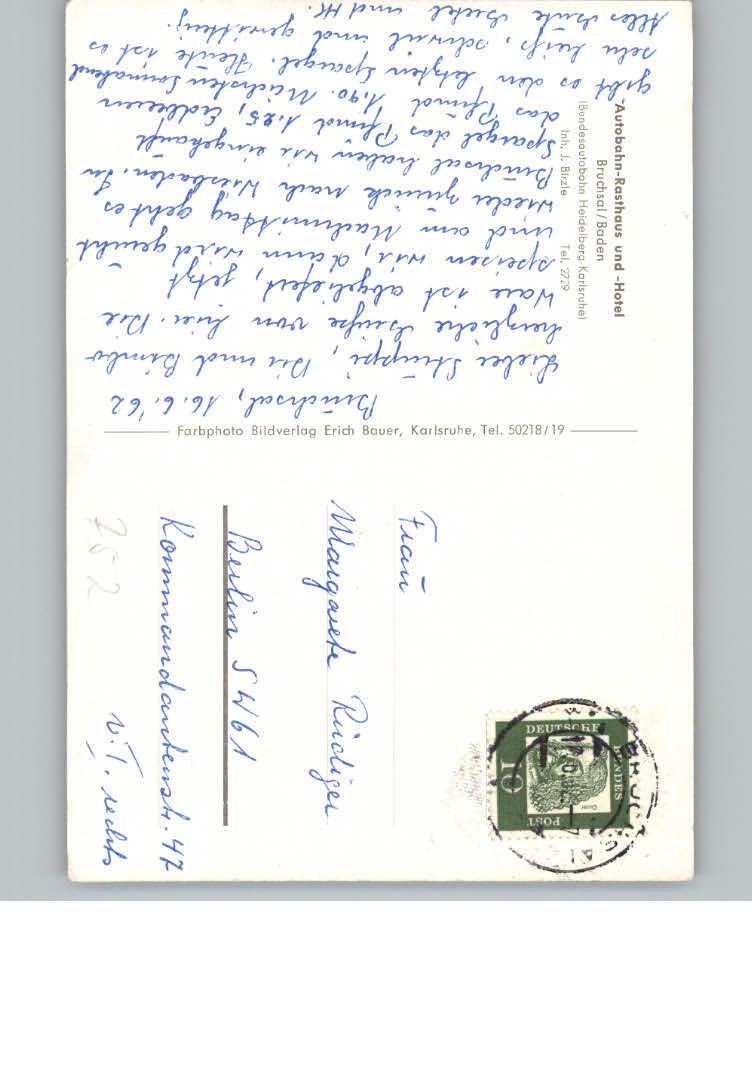 Autobahn-Rasthaus und -Hotel
Bruchsal/Baden
(Bundesautobahn Heidelberg-Karlsruhe)
Inh. J. Birzle Tel. 2729
Bruchsal, 16.6.'62
Liebe Struppi, Dir und Bimbo
herzliche Grüße von hier. Die
Ware ist abgeliefert, jetzt
speisen wir, dann wird geruht
und am Nachmittag geht es
wieder zurück nach Wiesbaden. In
Bruchsal haben wir eingekauft
Spargel das Pfund 1.25, Erdbeeren
das Pfund 1.40. Nächsten Sonnabend
gibt es den letzten Spargel. Heute ist es
sehr heiß, schwül und gewittrig.
Alles Gute und
Farbphoto Bildverlag Erich Bauer, Karlsruhe, Tel. 50218/19
Frau
Margarete Rüdiger
Berlin SW61
Kommandantenstr. 47
v. I. rechts
752
DEUTSCHE
BUNDES
POST
10
Dürer
BRUCHSAL